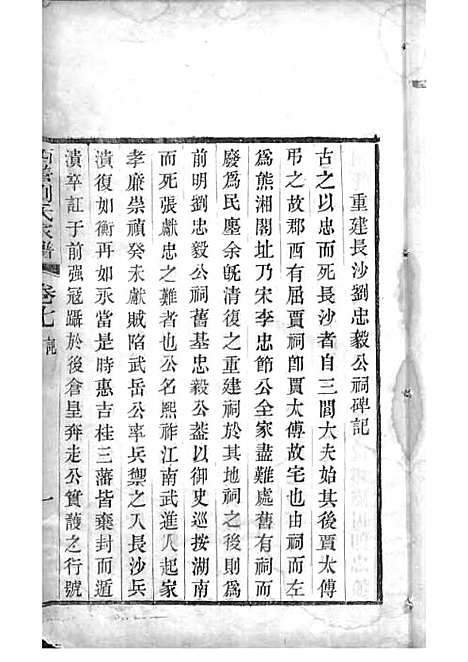 重建長沙劉忠毅公祠碑記
古之以忠而死長沙者自三閭大夫始其後賈太傅
弔之故郡西有屈賈祠卽賈太傅故宅也由祠而左
爲熊湘閣址乃宋李忠節公全家盡難處舊有祠而
廢爲民廛余旣清復之重建祠於其地祠之後則爲
前明劉忠毅公祠舊基忠毅公蓋以御史巡按湖南
而死張獻忠之難者也公名熙祚江南武進人起家
孝廉崇禎癸未獻賊陷武岳公率兵禦之入長沙兵
潰復如衡再如永當是時惠吉桂三藩皆棄封而遁
潰卒訌于前强冦躡於後倉皇奔走公實護之行號
劉氏家譜
卷七
記
一